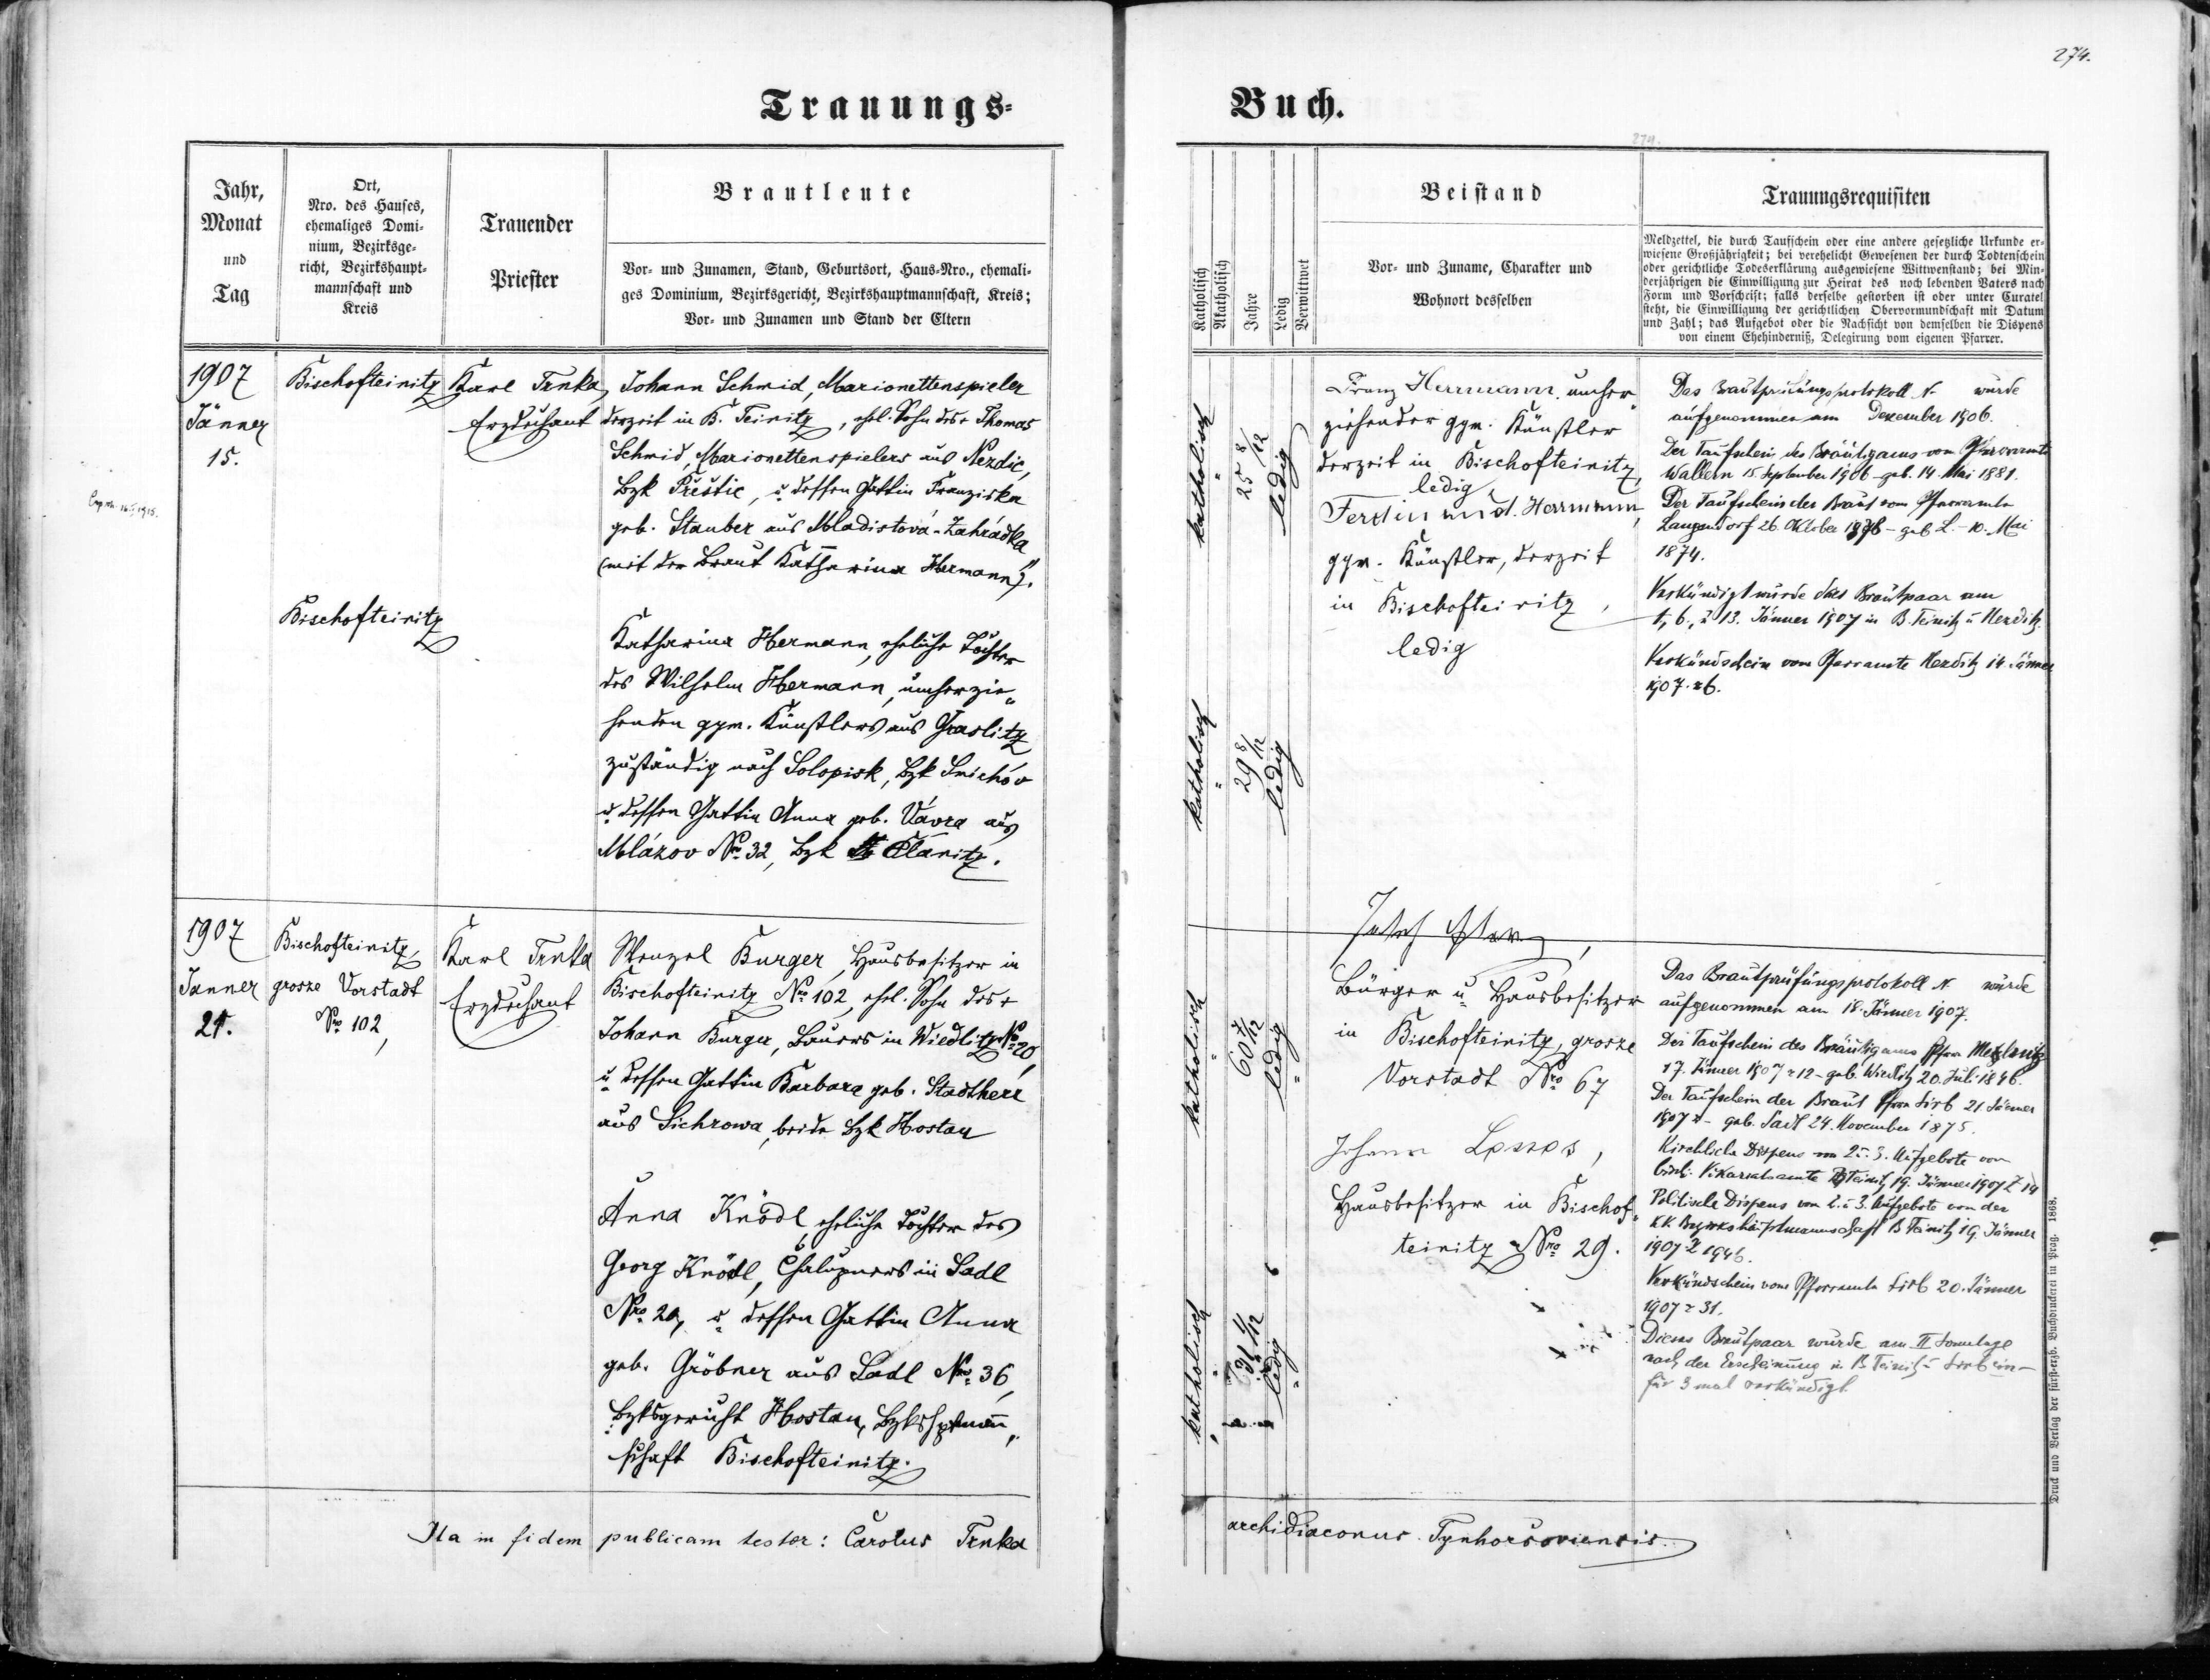 274.
Trauungs-
Buch.
274.
Jahr,
Monat
und
Tag
Ort,
Nro. des Hauses,
ehemaliges Domi-
nium, Bezirksge-
richt, Bezirkshaupt-
mannschaft und
Kreis
Trauender
Priester
Brautleute
Vor- und Zunamen, Stand, Geburtsort, Haus-Nro., ehemali-
ges Dominium, Bezirksgericht, Bezirkshauptmannschaft, Kreis;
Vor- und Zunamen und Stand der Eltern
Katholisch
Akatholisch
Jahre
Ledig
Verwittwet
Beistand
Vor- und Zuname, Charakter und
Wohnort desselben
Trauungsrequisiten
Meldzettel, die durch Taufschein oder eine andere gesetzliche Urkunde er-
wiesene Großjährigkeit; bei verehelicht Gewesenen der durch Todtenschein
oder gerichtliche Todeserklärung ausgewiesene Wittwenstand; bei Min-
derjährigen die Einwilligung zur Heirat des noch lebenden Vaters nach
Form und Vorschrift; falls derselbe gestorben ist oder unter Curatel
steht, die Einwilligung der gerichtlichen Obervormundschaft mit Datum
und Zahl; das Aufgebot oder die Nachsicht von demselben die Dispens
von einem Ehehinderniß, Delegirung vom eigenen Pfarrer.
1907
Jänner
15.
Bischofteinitz
Karl Trnka,
Erzdechant
Johann Schmid, Marionettenspieler
derzeit in B. Teinitz, ehel. Sohn des + Thomas
Schmid, Marionettenspielers aus Nezdic,
Bzk Přeštic, u. dessen Gattin Franziska
geb. Stauber aus Mladistová-Zahrádka
(mit der Braut Katharina Hermann).
Bischofteinitz
Katharina Hermann, eheliche Tochter
des Wilhelm Hermann, umherzie-
henden gym. Künstlers aus Graslitz
zuständig nach Solopisk, Bzk Smichov
u. dessen Gattin Anna geb. Vávra aus
Mlázov Nro 32, Bzk Planitz.
katholisch
25 8/12
ledig
katholisch
29 8/12
ledig
Franz Herrmann, umher-
ziehender gym. Künstler
derzeit in Bischofteinitz,
ledig
Ferdinand Herrmann,
gym. Künstler, derzeit
in Bischofteinitz,
ledig
Das Brautprüfungsprotokoll N. wurde
aufgenommen am Dezember 1906.
Der Taufschein des Bräutigams vom Pfarramte
Wallern 15. September 1906 - geb. 14. Mai 1881.
Der Taufschein der Braut vom Pfarramte
Langendorf 26. Oktober - geb. L. - 10. Mai
1874.
Verkündigt wurde das Brautpaar am
1, 6., u 13. Jänner 1907 in B. Teinitz u Nezditz.
Verkündschein vom Pfarramte Nezditz 14. Jänner
1907.
1907
Janner
21.
Bischofteinitz,
grosze Vorstadt
Nro 102,
Karl Trnka
Erzdechant
Wenzel Burger, Hausbesitzer in
Bischofteinitz Nro 102, ehel. Sohn des +
Johann Burger, Bauers in Wiedlitz No 20,
u. dessen Gattin Barbara geb. Stadtherr
aus Sichrowa, beide Bzk Hostau
Anna Knödl, eheliche Tochter des
Georg Knödl, Chalupners in Sadl
Nro 20, u. dessen Gattin Anna
geb. Gröbner aus Sadl Nro 36,
Bzksgericht Hostau, Bzkshptmann-
schaft Bischofteinitz.
katholisch
ledig
katholisch
ledig
Bürger u. Hausbesitzer
in Bischofteinitz, grosze
Vorstadt Nro 67
Johann
Hausbesitzer in Bischof-
teinitz Nro 29.
Das Brautprüfungsprotokoll N. wurde
aufgenommen am 18. Jänner 1907.
Der Taufschein des Bräutigams Pfarr Metzling
17. Jänner 1907 z 12 - geb. Wiedlitz 20. Juli 1846.
Der Taufschein der Braut Pfarr Sirb 21. Jänner
1907 - geb. Sadl 24. November 1875.
Kirchliche Dispens vom 2. u. 3. Aufgebote vom
bisch. Vikariatsamte B. Teinitz 19. Jänner 1907 Z 14
Politische Dispens vom 2. u 3. Aufgebote von der
KK. Bezirkshauptmannschaft B. Teinitz 19. Jänner
1907 Z 1946.
Verkündschein vom Pfarramte Sirb 20. Jänner
1907 z 31.
Dieses Brautpaar wurde am II Sonntage
nach der Erscheinung in B. Teinitz u Sirb ein-
für 3 mal verkündigt.
Ita in fidem publicam testor: Carolus Trnka
archidiaconus Tynhorsoviensis.
Druck und Verlag der fürst-erzb. Buchdruckerei in Prag. 1868.